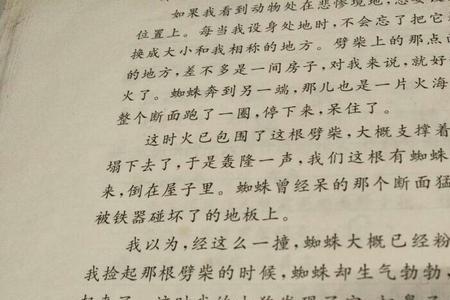 如果我看到动物处在悲惨境地,
位置上。每当我设身处地时,不会忘了把它
换成大小和我相称的地方。劈柴上的那点
的地方,差不多是一间房子,对我来说,就好
火了。蜘蛛奔到另一端,那儿也是一片火海
整个断面跑了一圈,停下来,呆住了。
这时火已包围了这根劈柴,大概支撑着
塌下去了,于是轰隆一声,我们这根有蜘蛛
来,倒在屋子里。蜘蛛曾经呆的那个断面猛
被铁器碰坏了的地板上。
我以为,经这么一撞,蜘蛛大概已经粉
我捡起那根劈柴的时候,蜘蛛却生气勃勃,